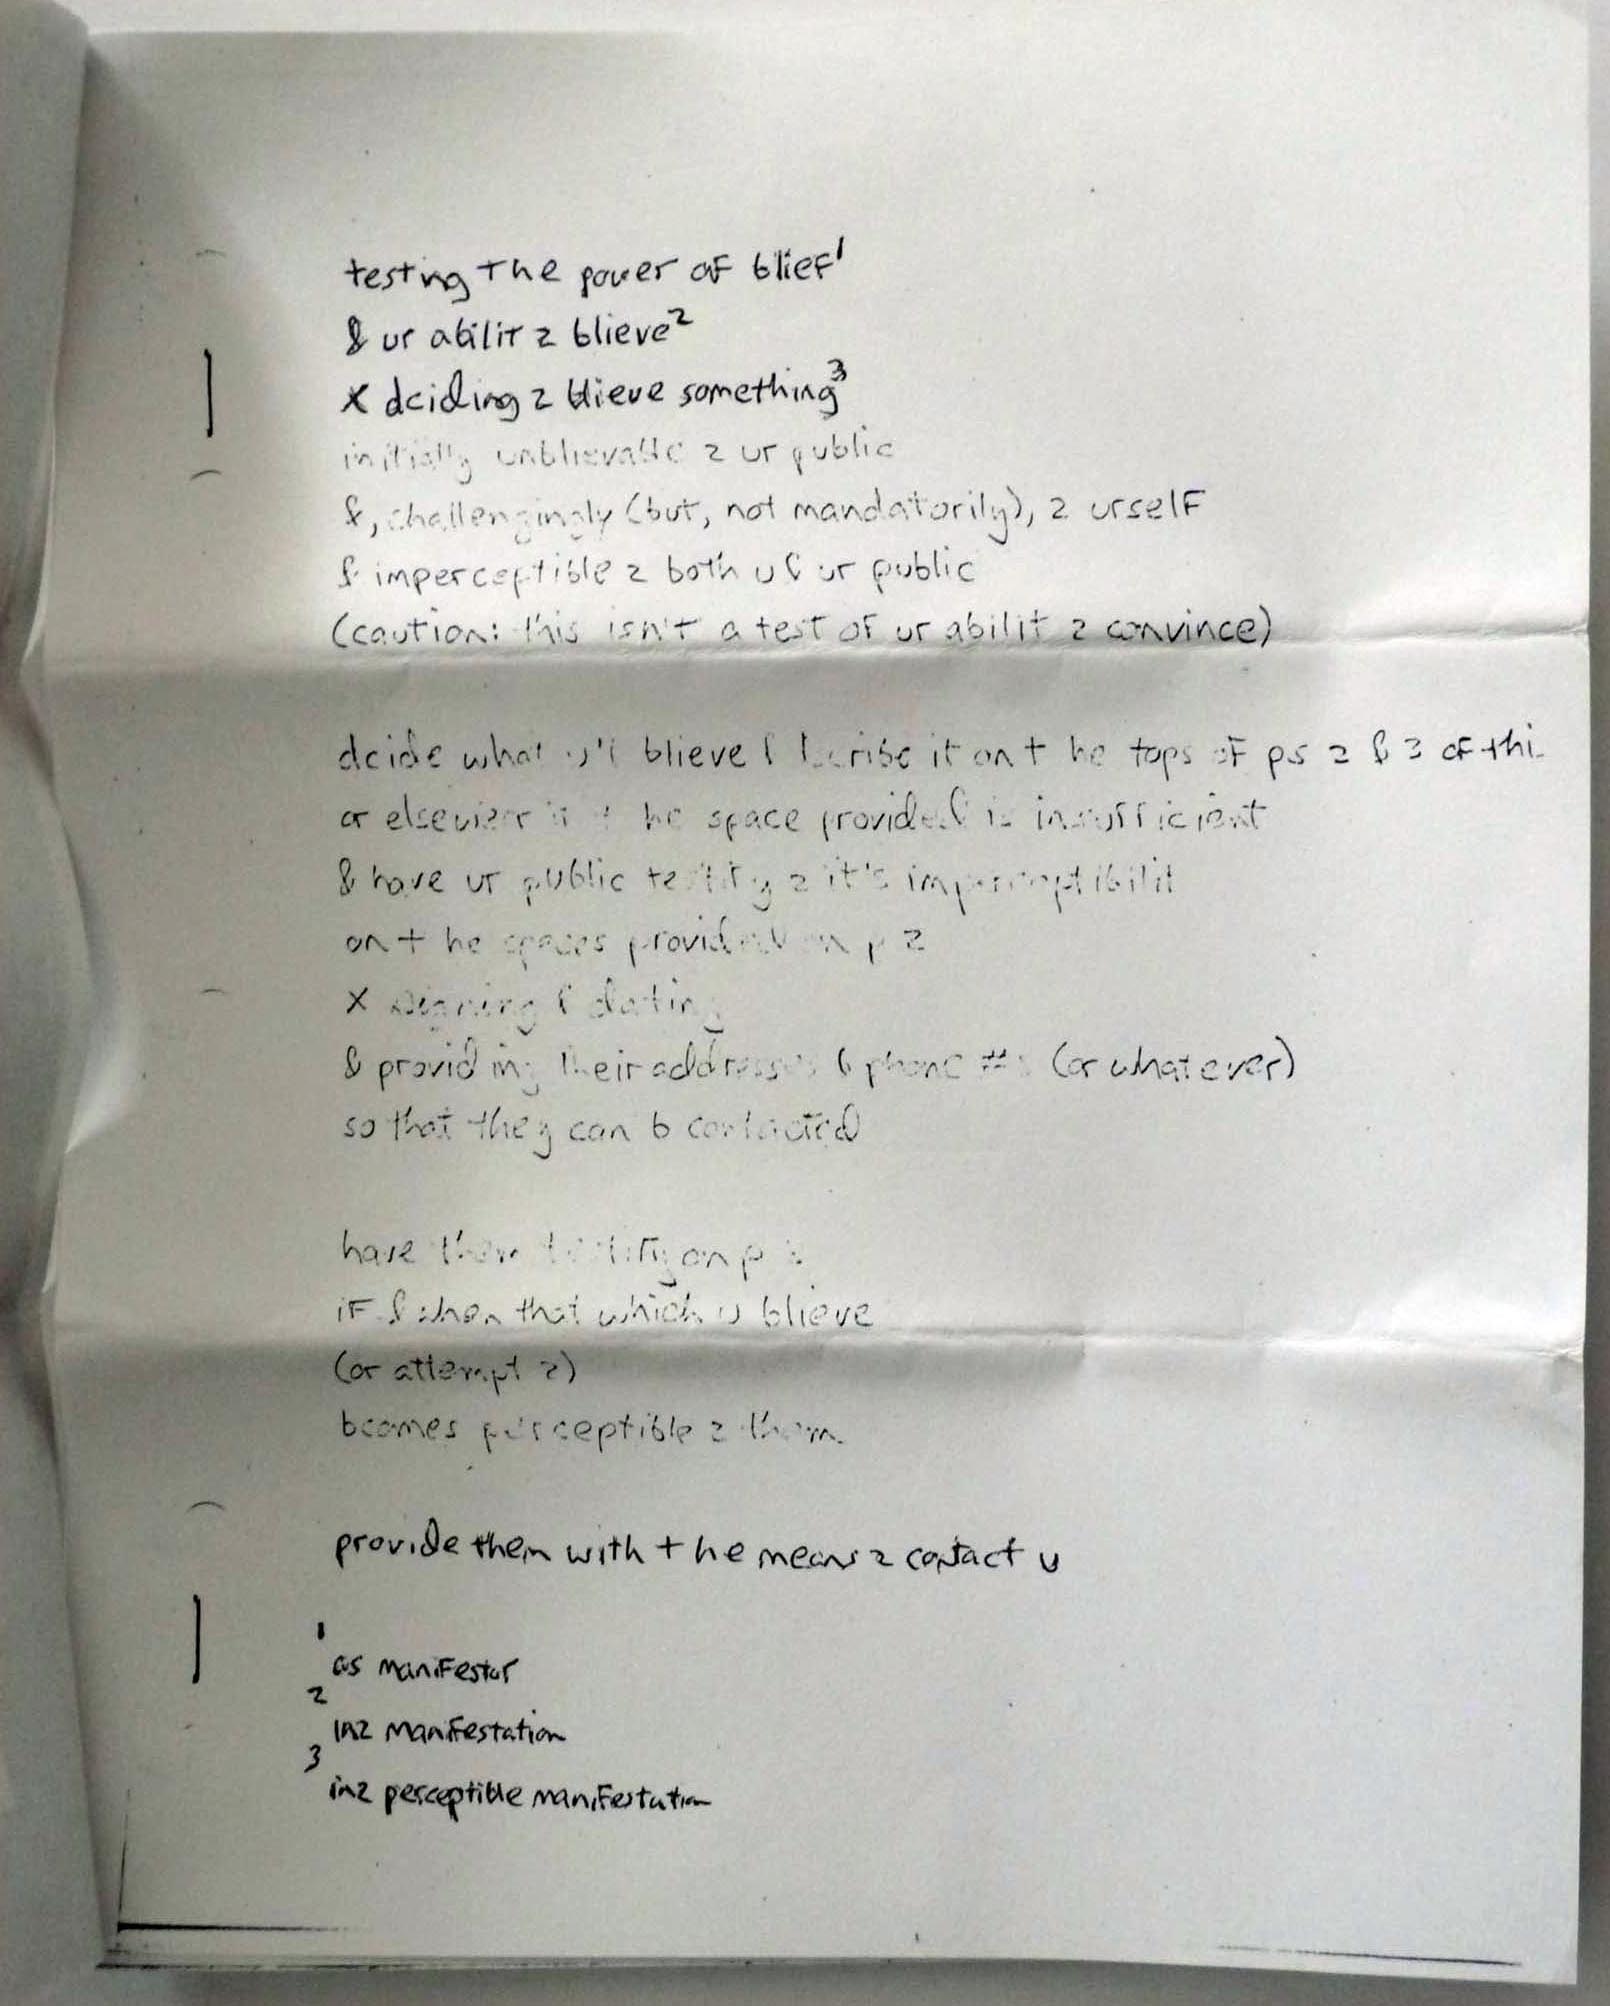 testing the power of blief¹
& ur abilit 2 blieve²
x dciding 2 blieve something³
initially unblievable 2 ur public
&, challengingly (but, not mandatorily), 2 urself
& imperceptible 2 both u & ur public
(caution: this isn't a test of ur abilit 2 convince)
dcide what u'll blieve & it on t he tops of ps 2 & 3 of thi
or t he space provided is insufficient
& have ur public testify 2 it's imperceptibilit
on t he spaces provided on p 2
x signing & dating
& providing their addresses & phone #s (or whatever)
so that they can b contacted
have them testify on p
if & when that which u blieve
(or attempt 2)
bcomes perceptible 2 them.
provide them with t he means 2 contact u
1
as manifestor
2
in2 manifestation
3
in2 perceptible manifestation